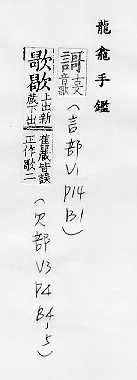 龍龕手鑑
謌 古文 音歌 (言部 V1 P14 B1)
上出新藏下出舊藏皆誤正作歌二 (欠部 V3 P4 B4,5)